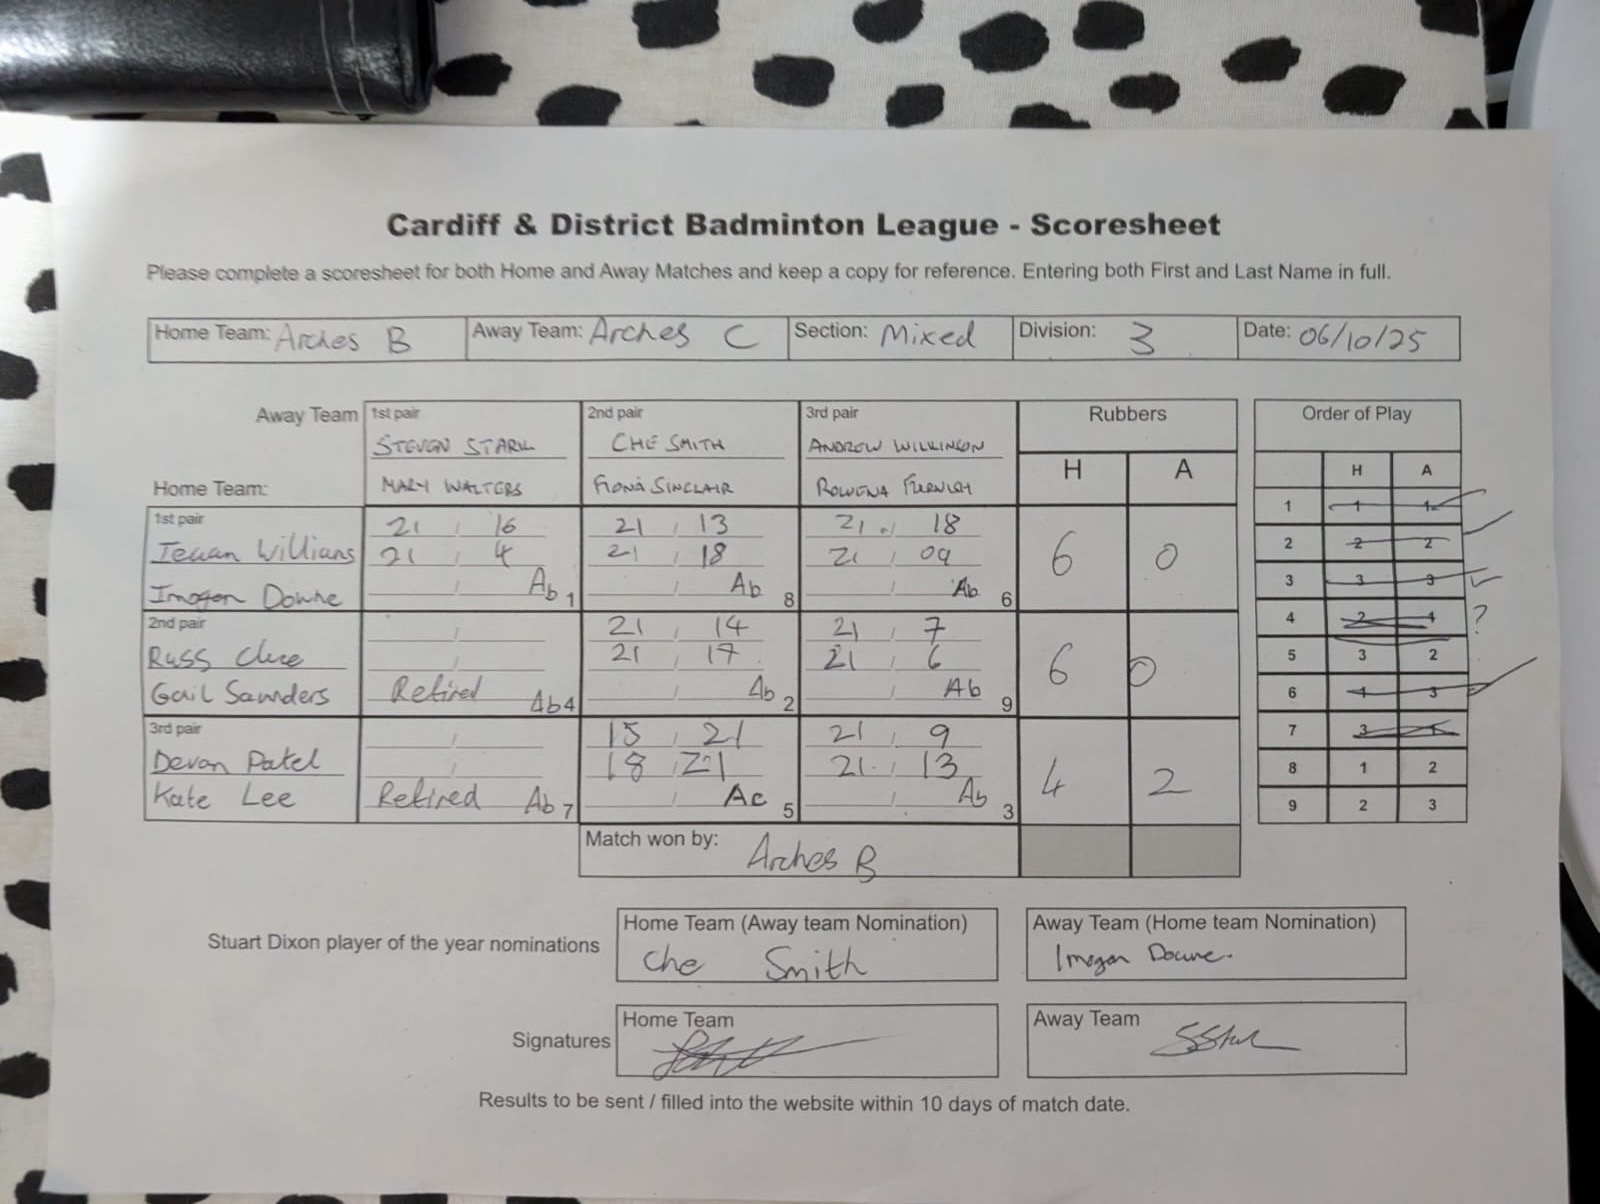 Cardiff & District Badminton League - Scoresheet
Please complete a scoresheet for both Home and Away Matches and keep a copy for reference. Entering both First and Last Name in full.
Home Team: Arches B Away Team: Arches C Section: Mixed Division: 3 Date: 06/10/25
Away Team 1st pair 2nd pair 3rd pair Rubbers Order of Play
STEVEN STARK CHE SMITH ANDREW WILKINSON
H A H A
Home Team: MARY WALTERS FIONA SINCLAIR ROWENA FURNISH
1 1 1
1st pair 21 , 16 21 , 13 21 , 18
Ieuan Willians 21 , 4 21 , 18 21 , 09 6 0
2 2 2
Imogen Downe Ab 1 Ab 8 Ab 6
3 3 3 ✓
2nd pair 21 , 14 21 , 7
4 2 1 ?
Russ Clue 21 , 17 21 , 6 6 0
5 3 2
Gail Saunders Retired Ab 4 Ab 2 Ab 9
6 1 3
3rd pair 15 , 21 21 , 9
7 3 1
Devan Patel 18 , 21 21 , 13
8 1 2
Kate Lee Retired Ab 7 Ac 5 Ab 3 4 2
9 2 3
Match won by: Arches B
Home Team (Away team Nomination) Away Team (Home team Nomination)
Stuart Dixon player of the year nominations Che Smith Imogen Downe.
Home Team Away Team SStark
Signatures
Results to be sent / filled into the website within 10 days of match date.